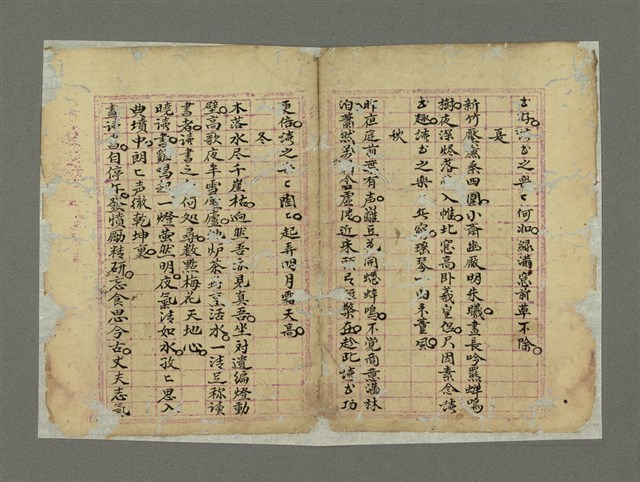 书好讀书之樂〻何如綠滿窓前草不除
夏
新竹壓簷桑四圍小斎幽厰明朱曦晝長吟罷蟬鳴
樹夜深燼落入帷北窓高卧羲皇但只因素念讀
书趣讀书之樂無窮瑤琴一曲来薰風
秋
昨夜庭前葉有声籬豆花開蟋蟀鳴不覺商意滿林
泊蕭然萬籟含虚清近床有短檠在趁此讀书功
更倍讀之樂〻陶〻起弄明月霜天高
冬
木落水尽千崖枯迥然吾亦見真吾坐对遺編燈動
壁高歌夜半雪壓廬地炉茶烹活水一清足称读
書者讀書之何処尋数點梅花天地心
曉讀書鷄鳴起一燈萤然明夜氣清如水孜〻思入
典墳中朗〻声徹乾坤裏
晝讀書日停午發憤勵精研忘食思今古丈夫志氣